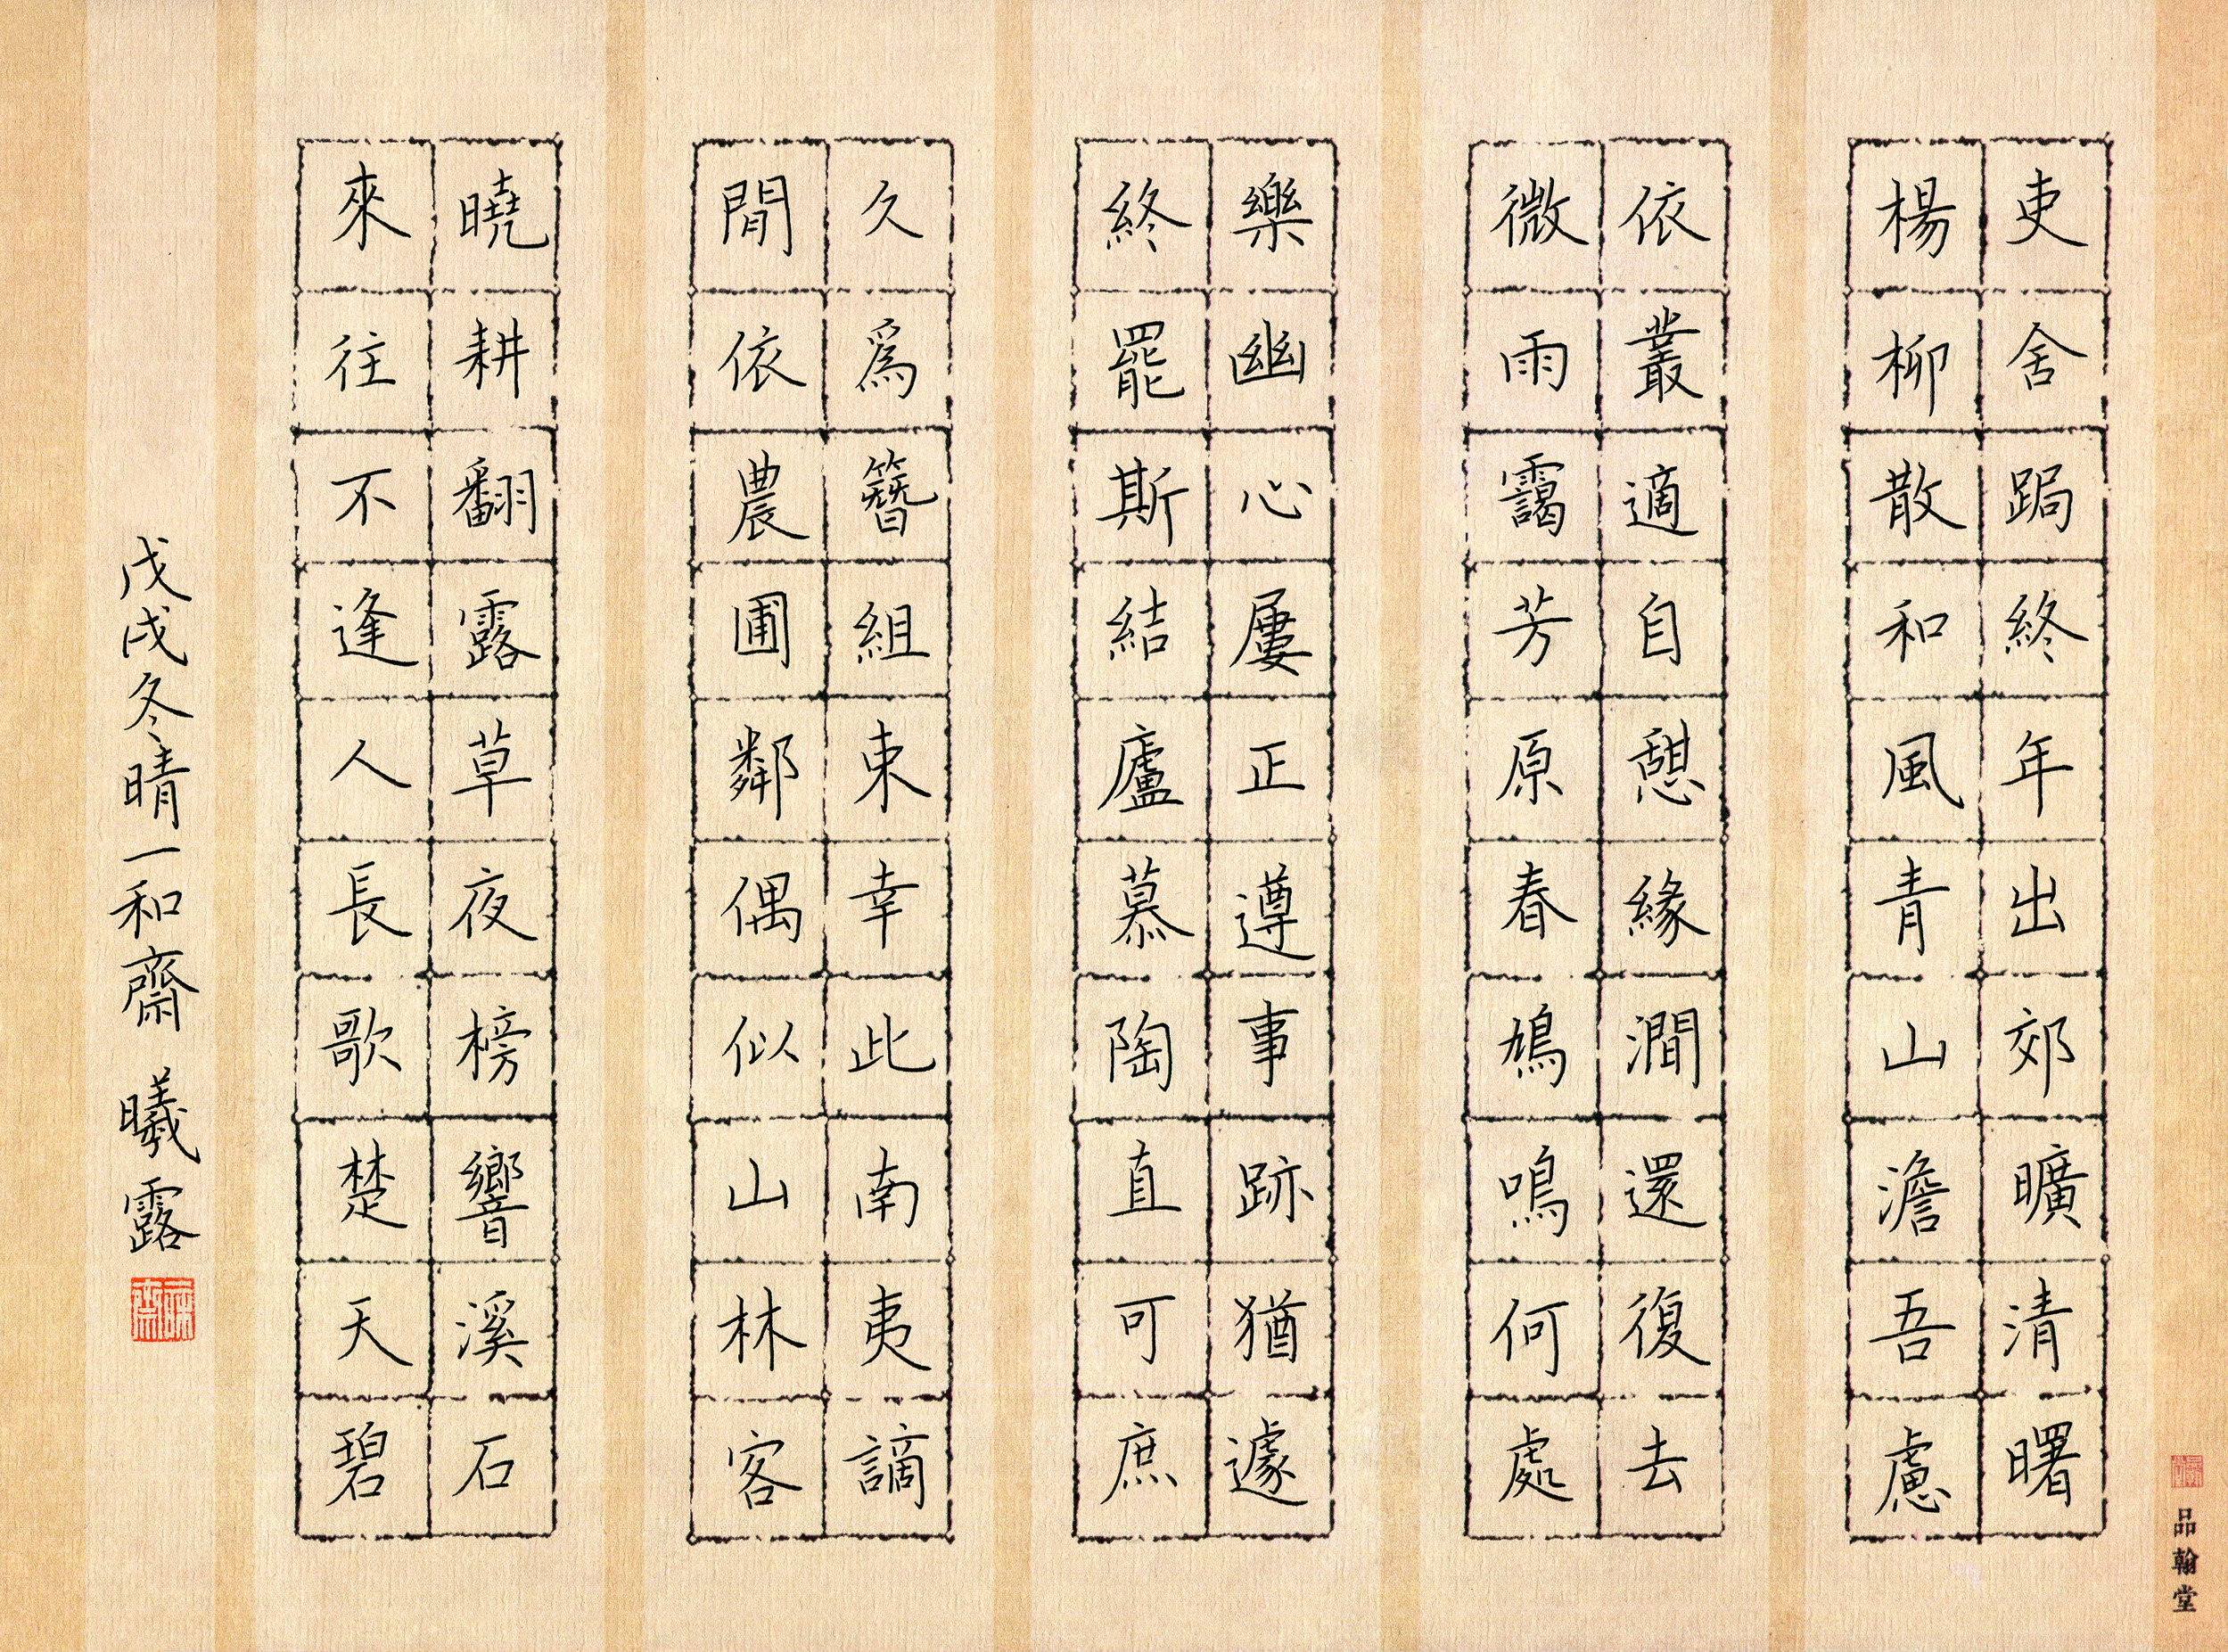 吏舍跼終年出郊曠清曙
楊柳散和風青山澹吾慮
依叢適自憩緣澗還復去
微雨靄芳原春鳩鳴何處
樂幽心屢正遵事跡猶遽
終罷斯結廬慕陶直可庶
久為簪組束幸此南夷謫
閒依農圃鄰偶似山林客
曉耕翻露草夜榜響溪石
來往不逢人長歌楚天碧
戊戌冬晴一和齋 曦露
品翰堂